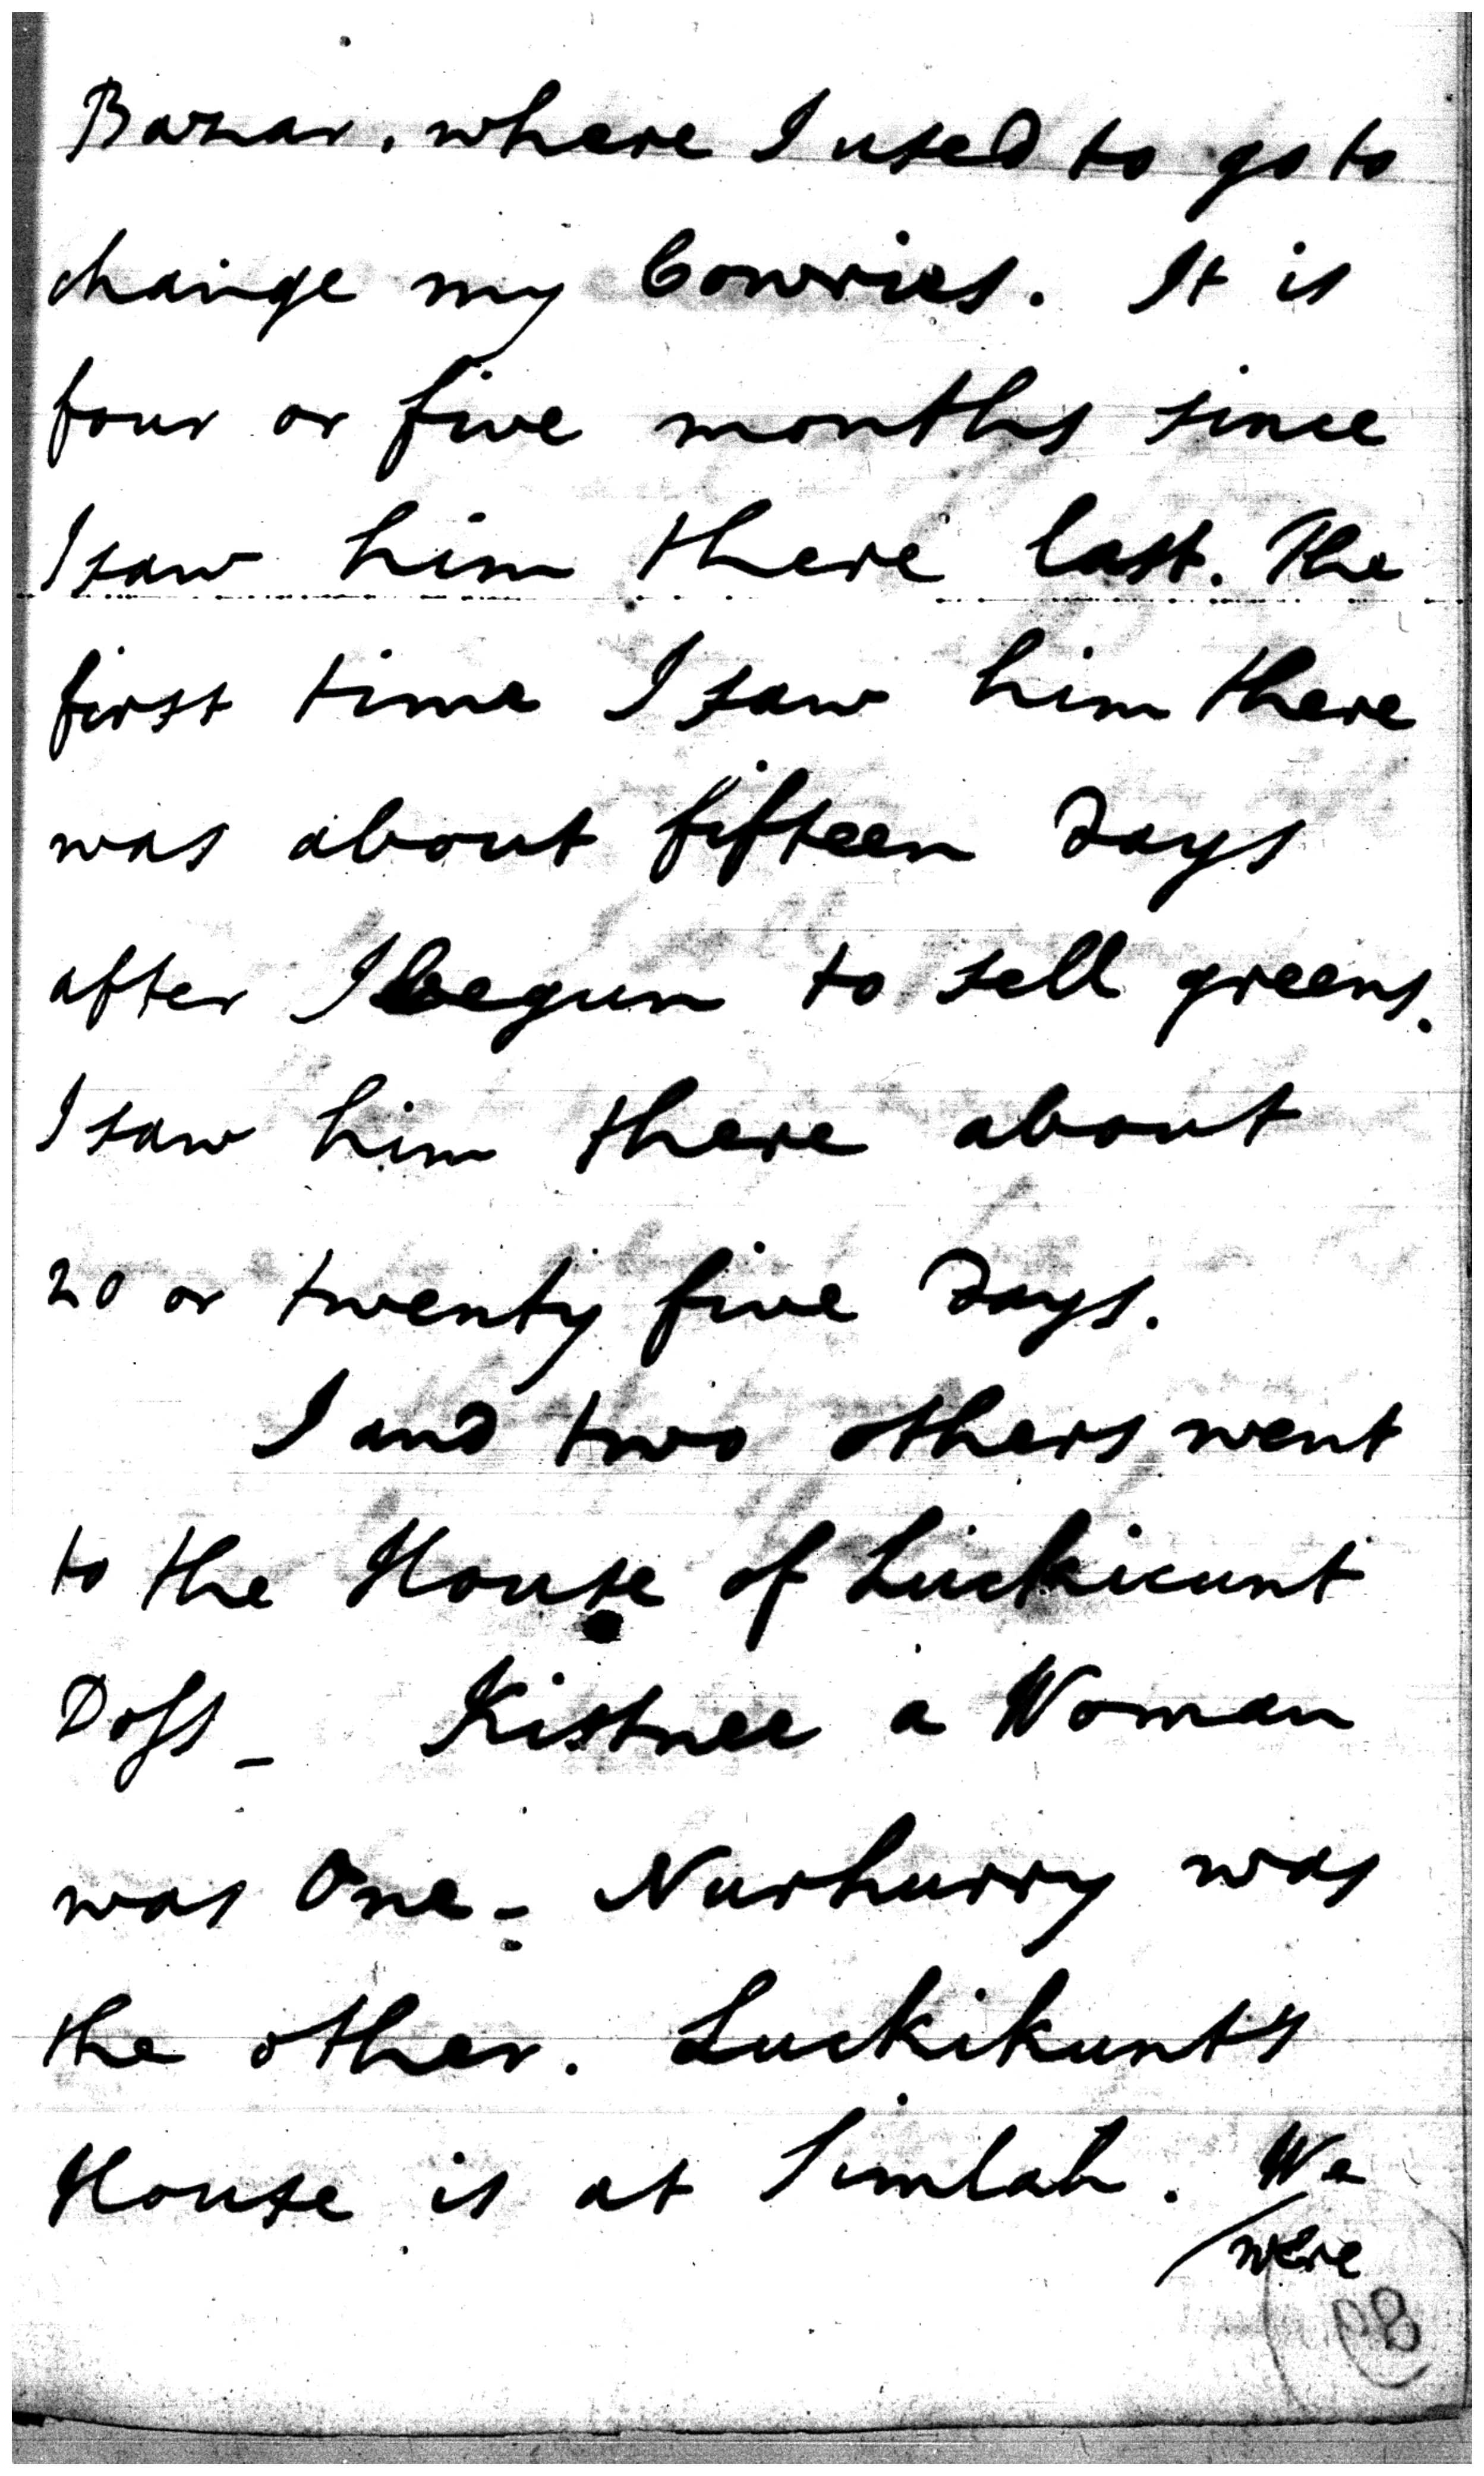 Bazar, where I used to go to
change my Cowries. It is
four or five months since
I saw him there last. The
first time I saw him there
was about fifteen Days
after I begun to sell greens.
I saw him there about
20 or twenty five Days.
I and two others went
to the House of Luckicunt
Doss_ Kistnee a Woman
was One_ Nurhurry was
the other. Luckikunt's
House is at Simlah. We
were